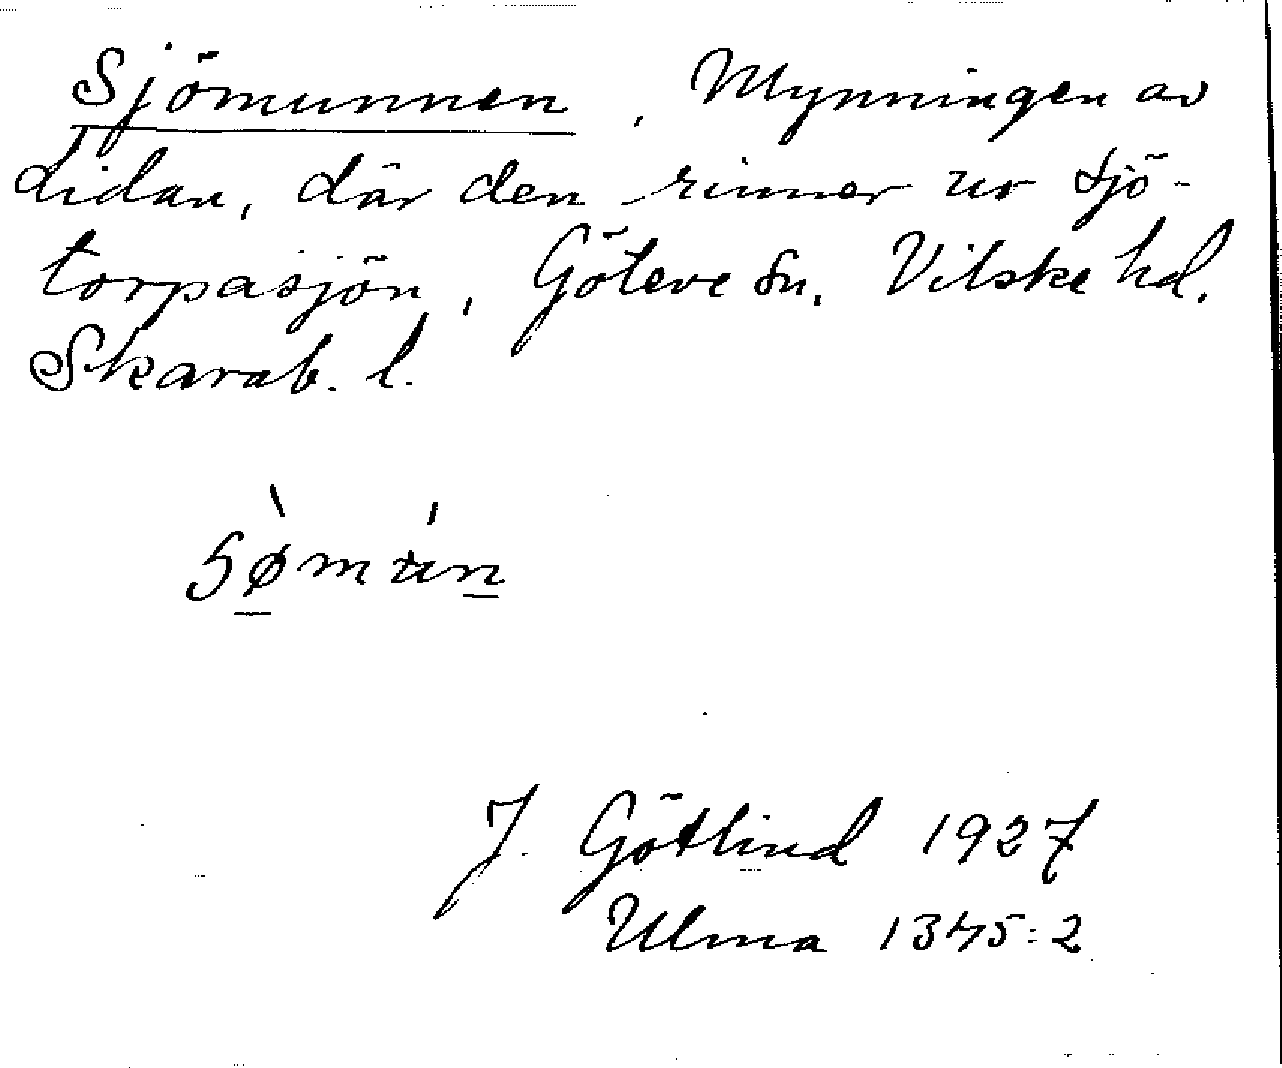 Sjömunnen, Mynningen av
Lidan, där den rinner ur Sjö-
torpasjön, Göteve sn. Vilske hd.
Skarab. l.
J. Götlind 1927
Ulma 1345:2